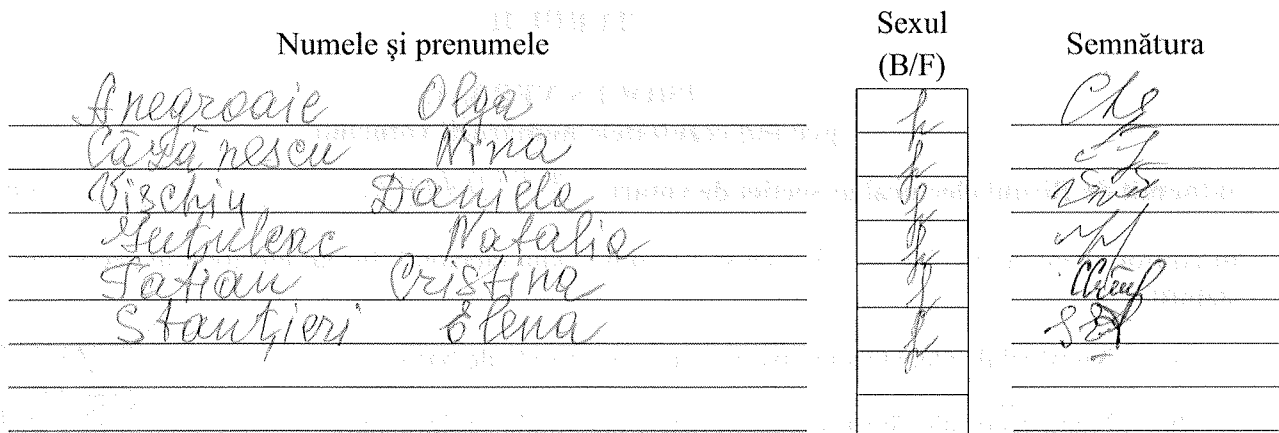 Numele și prenumele Sexul (B/F) Semnătura
Anegroaie Olga f
Căzănescu Nina f
Vișchiu Daniela f
Gutuleac Natalia f
Tatian Cristina f
Stanțieri Elena f